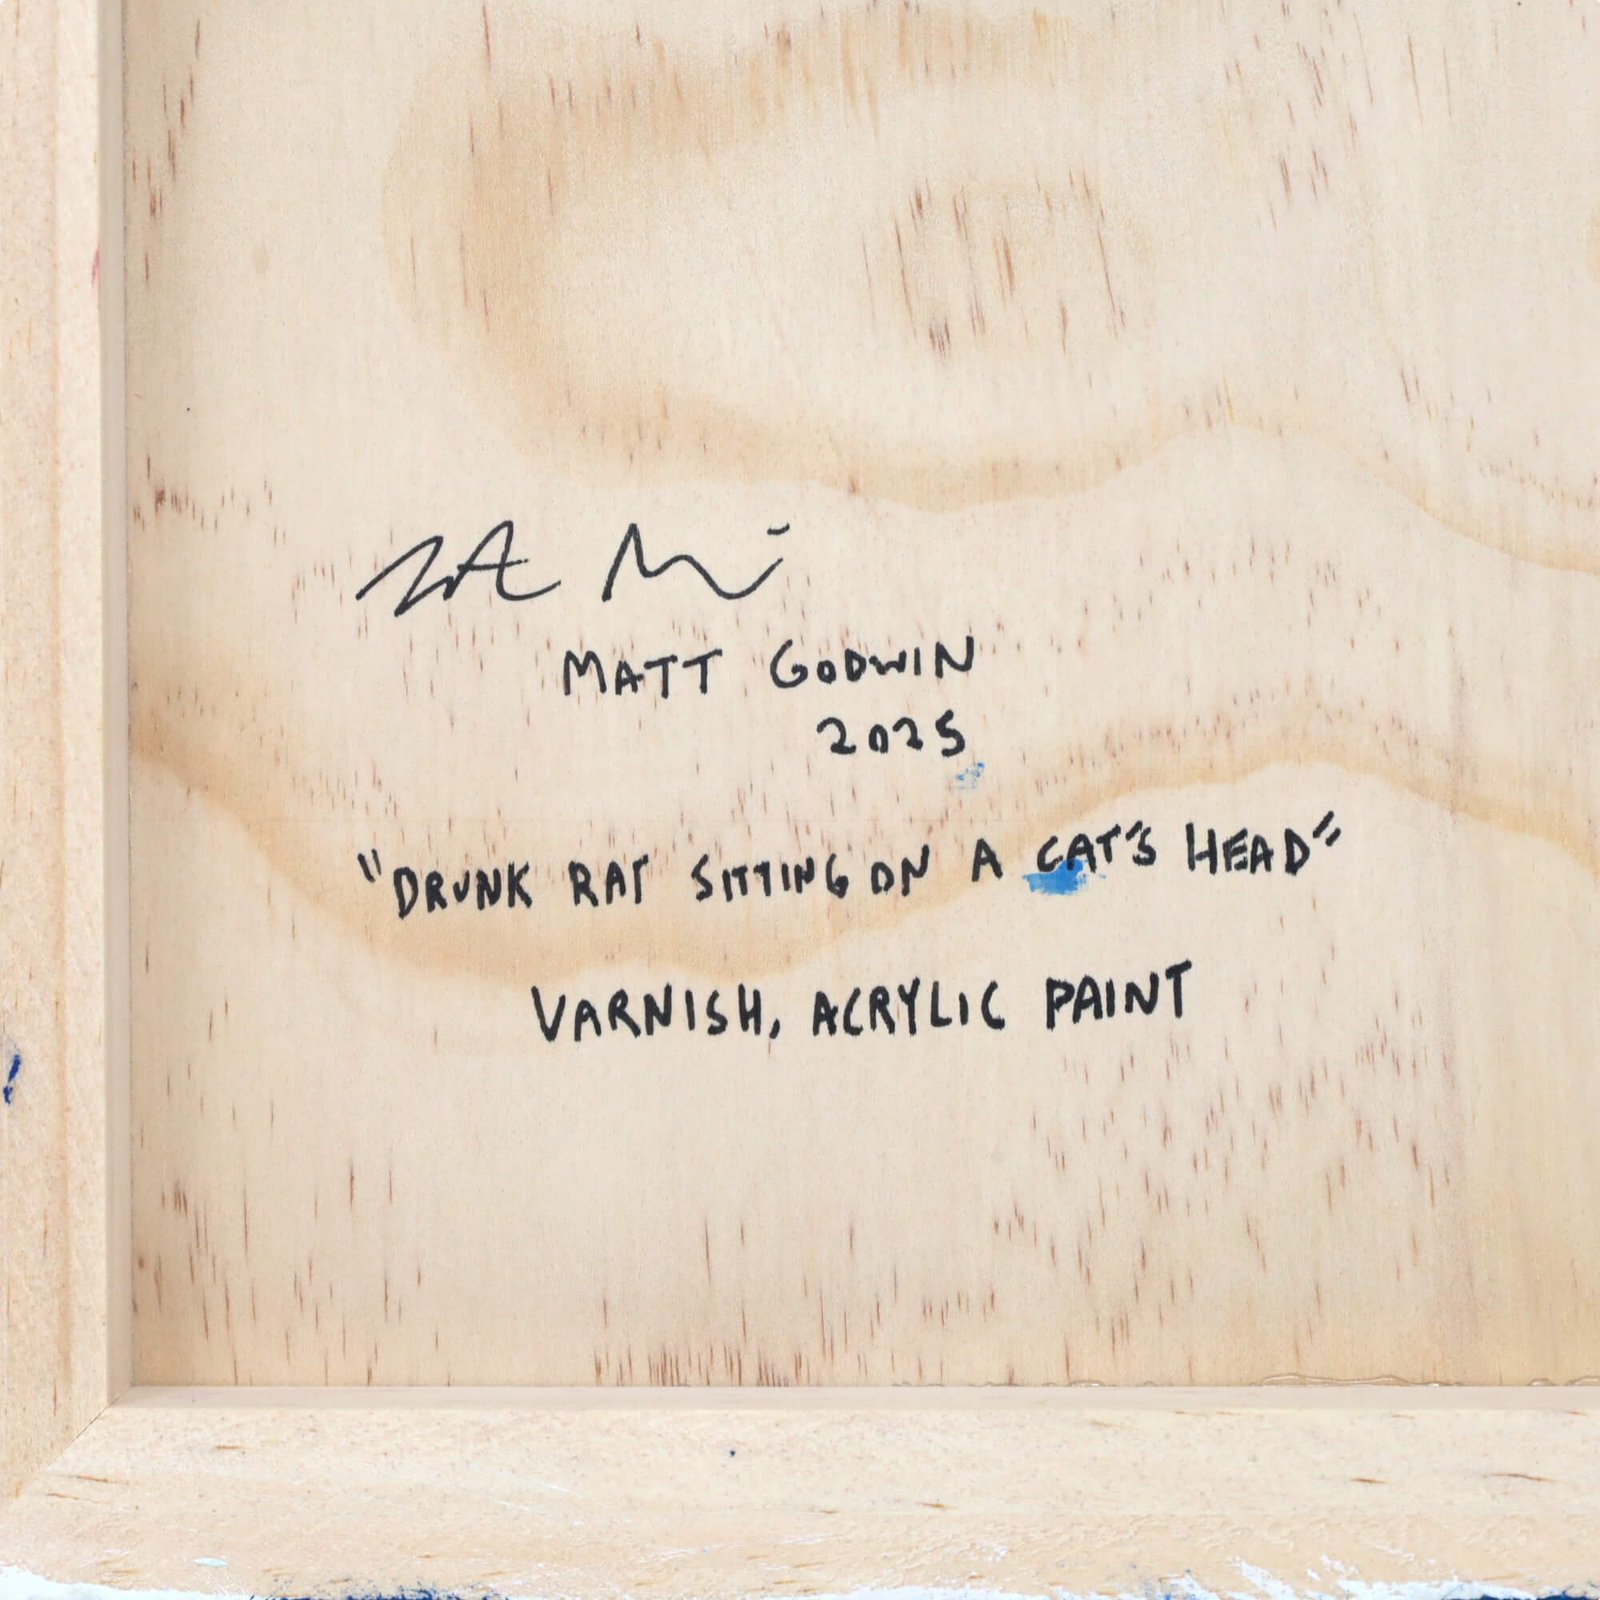 MATT GODWIN
2025
"DRUNK RAT SITTING ON A CAT'S HEAD"
VARNISH, ACRYLIC PAINT